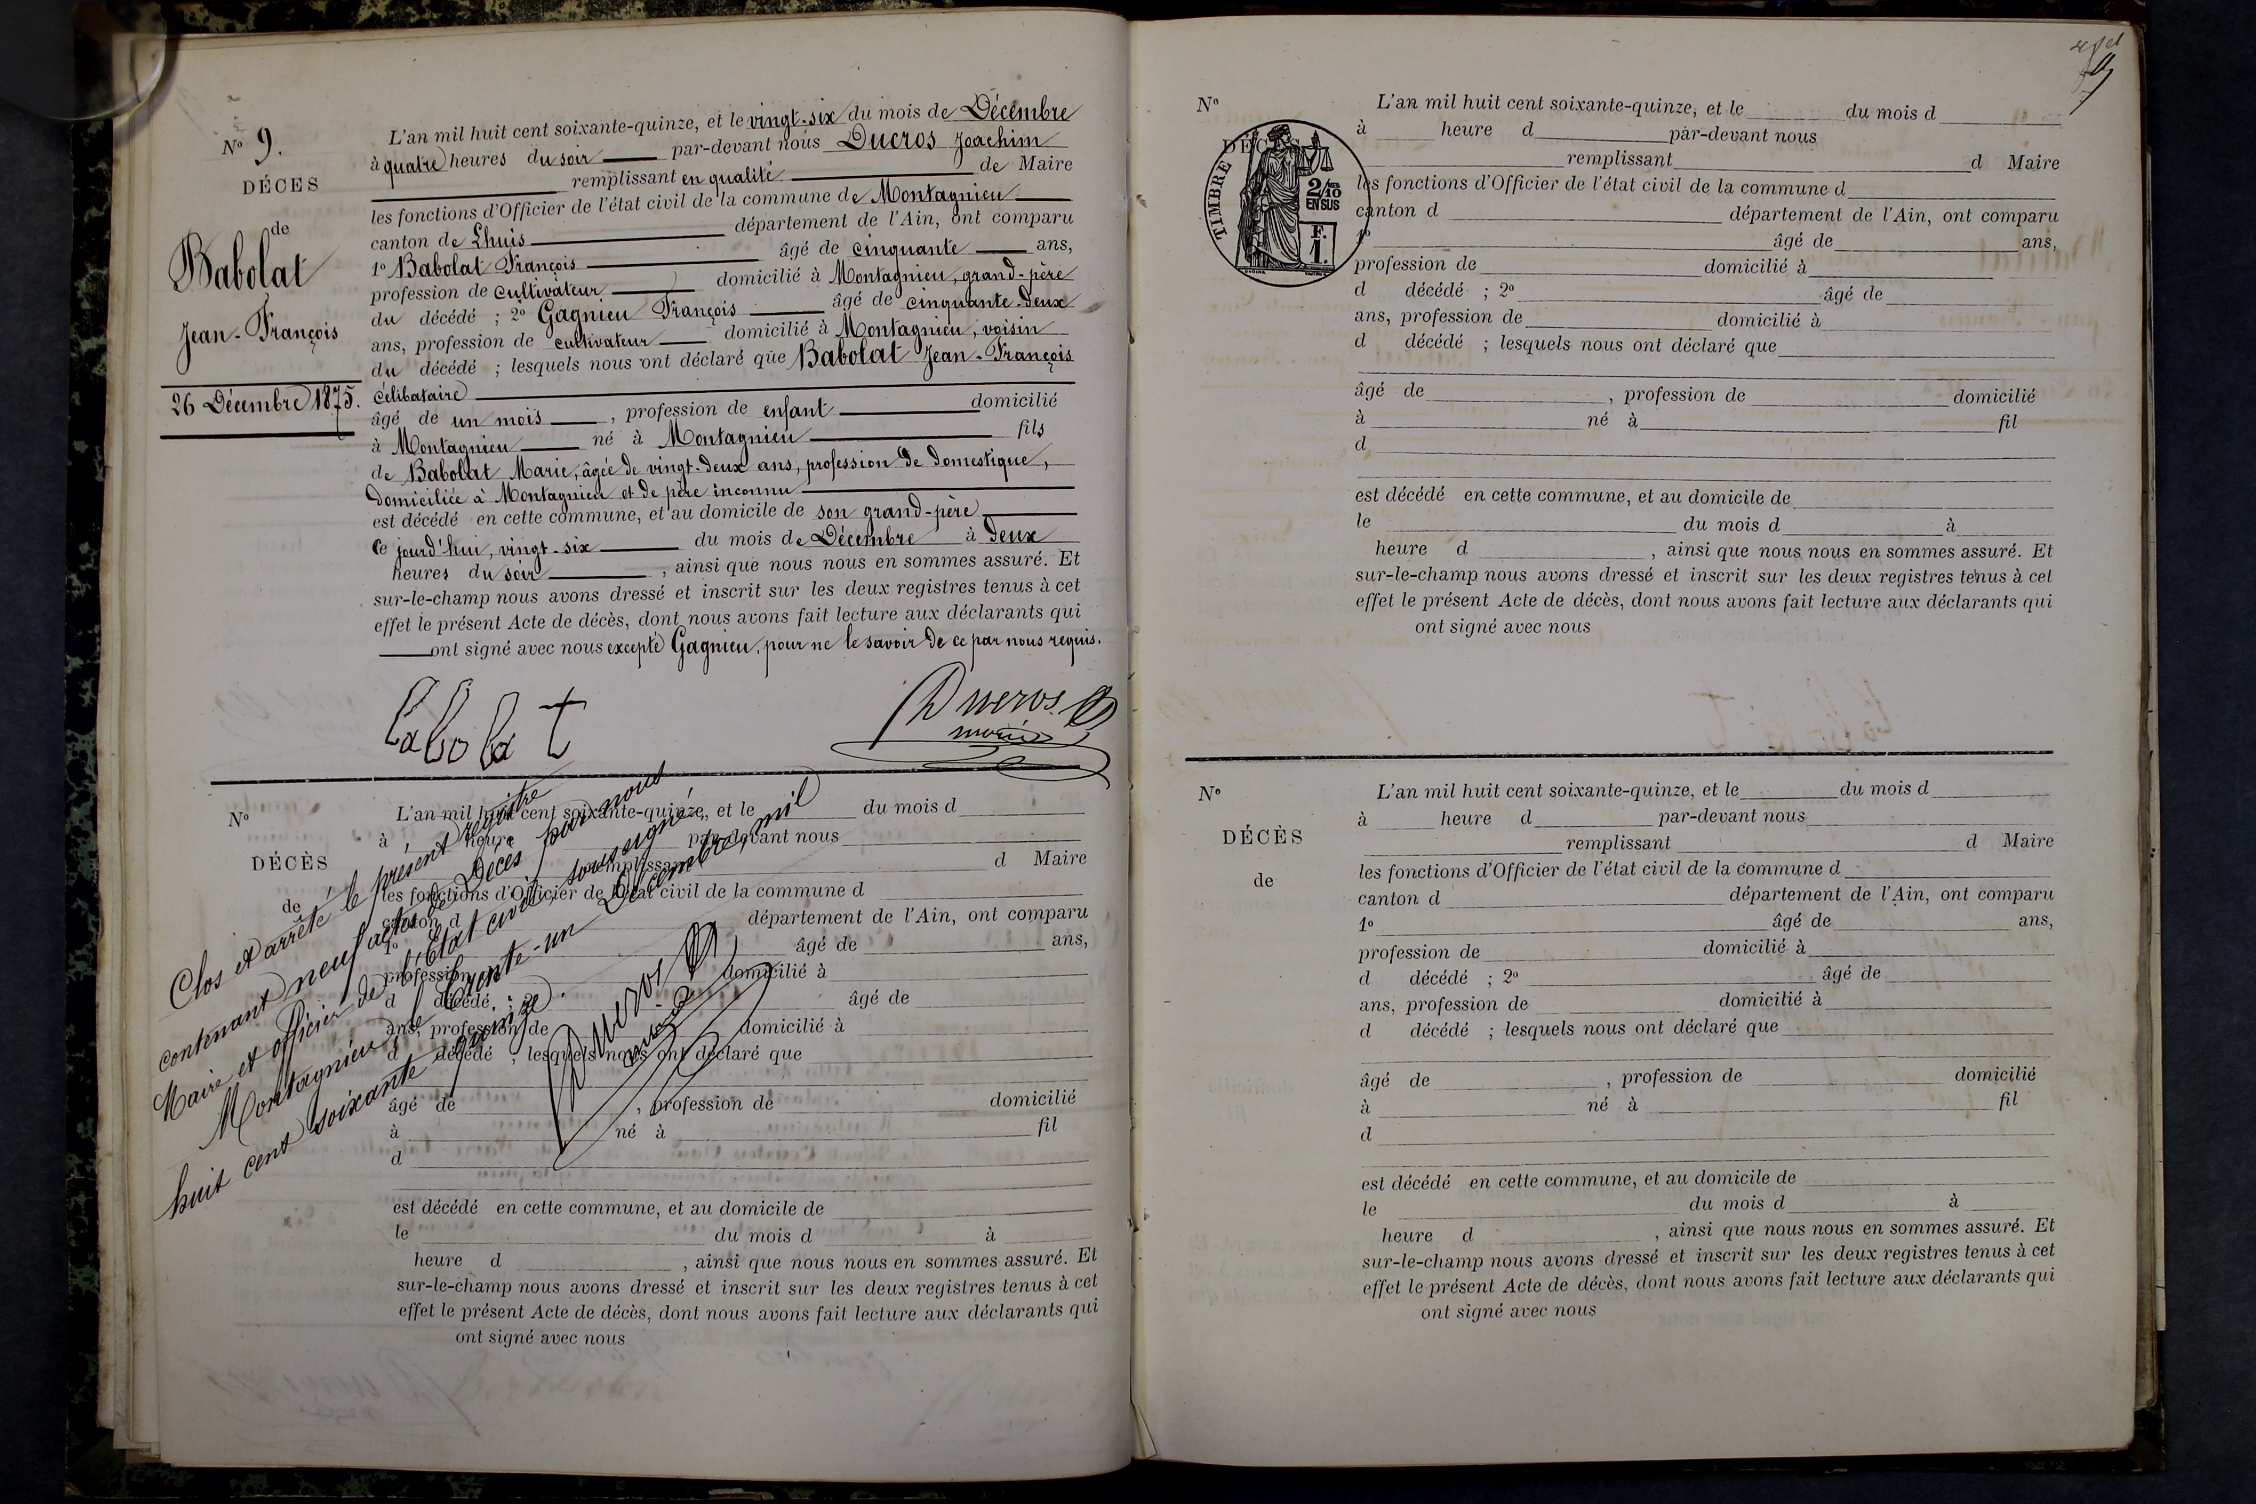 Nº 9.
DÉCES
de
Babolat
Jean-François
26 Décembre 1875.
L'an mil huit cent soixante-quinze, et le vingt-six du mois de Décembre
à quatre heures du soir par-devant nous Ducros Joachim
remplissant en qualité de Maire
les fonctions d'Officier de l'état civil de la commune de Montagnieu
canton de Lhuis département de l'Ain, ont comparu
1º Babolat François âgé de cinquante ans,
profession de cultivateur domicilié à Montagnieu, grand-père
du décédé ; 2º Gagnieu François âgé de cinquante-deux
ans, profession de cultivateur domicilié à Montagnieu, voisin
du décédé ; lesquels nous ont déclaré que Babolat Jean-François
célibataire
âgé de un mois , profession de enfant domicilié
à Montagnieu né à Montagnieu fils
de Babolat Marie, âgée de vingt-deux ans, profession de domestique,
domiciliée à Montagnieu et de père inconnu
est décédé en cette commune, et au domicile de son grand-père
ce jourd'hui, vingt-six du mois de Décembre à deux
heures du soir , ainsi que nous nous en sommes assuré. Et
sur-le-champ nous avons dressé et inscrit sur les deux registres tenus à cet
effet le présent Acte de décès, dont nous avons fait lecture aux déclarants qui
ont signé avec nous excepté Gagnieu, pour ne le savoir de ce par nous requis.
Babolat
Ducros
maire
Nº
DÉCÈS
de
L'an mil huit cent soixante-quinze, et le du mois d
à heure par-devant nous
remplissant d Maire
les fonctions d'Officier de l'état civil de la commune d
canton d département de l'Ain, ont comparu
1º âgé de ans,
profession domicilié à
d décédé ; 2º âgé de
ans, profession de domicilié à
d décédé ; lesquels nous ont déclaré que
âgé de , profession de domicilié
à né à fil
d
est décédé en cette commune, et au domicile de
le du mois d à
heure d , ainsi que nous nous en sommes assuré. Et
sur-le-champ nous avons dressé et inscrit sur les deux registres tenus à cet
effet le présent Acte de décès, dont nous avons fait lecture aux déclarants qui
ont signé avec nous
Clos et arrêté le présent registre
contenant neuf actes de Décès par nous
Maire et officier de l'État civil, soussigné,
Montagnieu, le trente-un Décembre, mil
huit cent soixante quinze.
Ducros
maire
9
Nº
DÉCÈS
TIMBRE
2/10
EN SUS
F.
1.
L'an mil huit cent soixante-quinze, et le du mois d
à heure d par-devant nous
remplissant d Maire
les fonctions d'Officier de l'état civil de la commune d
canton d département de l'Ain, ont comparu
1º âgé de ans,
profession de domicilié à
d décédé ; 2º âgé de
ans, profession de domicilié à
d décédé ; lesquels nous ont déclaré que
âgé de , profession de domicilié
à né à fil
d
est décédé en cette commune, et au domicile de
le du mois d à
heure d , ainsi que nous nous en sommes assuré. Et
sur-le-champ nous avons dressé et inscrit sur les deux registres tenus à cet
effet le présent Acte de décès, dont nous avons fait lecture aux déclarants qui
ont signé avec nous
Nº
DÉCÈS
de
L'an mil huit cent soixante-quinze, et le du mois d
à heure d par-devant nous
remplissant d Maire
les fonctions d'Officier de l'état civil de la commune d
canton d département de l'Ain, ont comparu
1º âgé de ans,
profession de domicilié à
d décédé ; 2º âgé de
ans, profession de domicilié à
d décédé ; lesquels nous ont déclaré que
âgé de , profession de domicilié
à né à fil
d
est décédé en cette commune, et au domicile de
le du mois d à
heure d , ainsi que nous nous en sommes assuré. Et
sur-le-champ nous avons dressé et inscrit sur les deux registres tenus à cet
effet le présent Acte de décès, dont nous avons fait lecture aux déclarants qui
ont signé avec nous